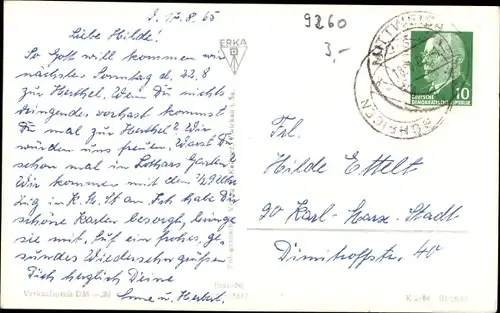 J. 17.8.65
9260
3,-
Liebe Hilde!
So Gott will kommen wir
nächsten Sonntag d. 22.8
zu Herthel. Wenn Du nichts
dringendes vorhast kommst
Du mal zur Herthel? Wir
würden uns freuen. Warst Du
schon mal in Lothars Garten
Wir kommen mit dem 1/2 9 Uhr
Zug in K. M. St an. Ich habe Dir
schöne Karten besorgt, bringe
sie mit. Auf ein frohes, ge-
sundes Wiedersehn grüßen
Dich herzlich Deine
Anne u. Herbert.
ERKA
MITTWEIDA
DEUTSCHE
DEMOKRATISCHE REPUBLIK
10
Frl.
Hilde Ettelt
90 Karl-Marx-Stadt
Dimitroffstr. 40
Verkaufspreis DM -,20
Best.-Nr.